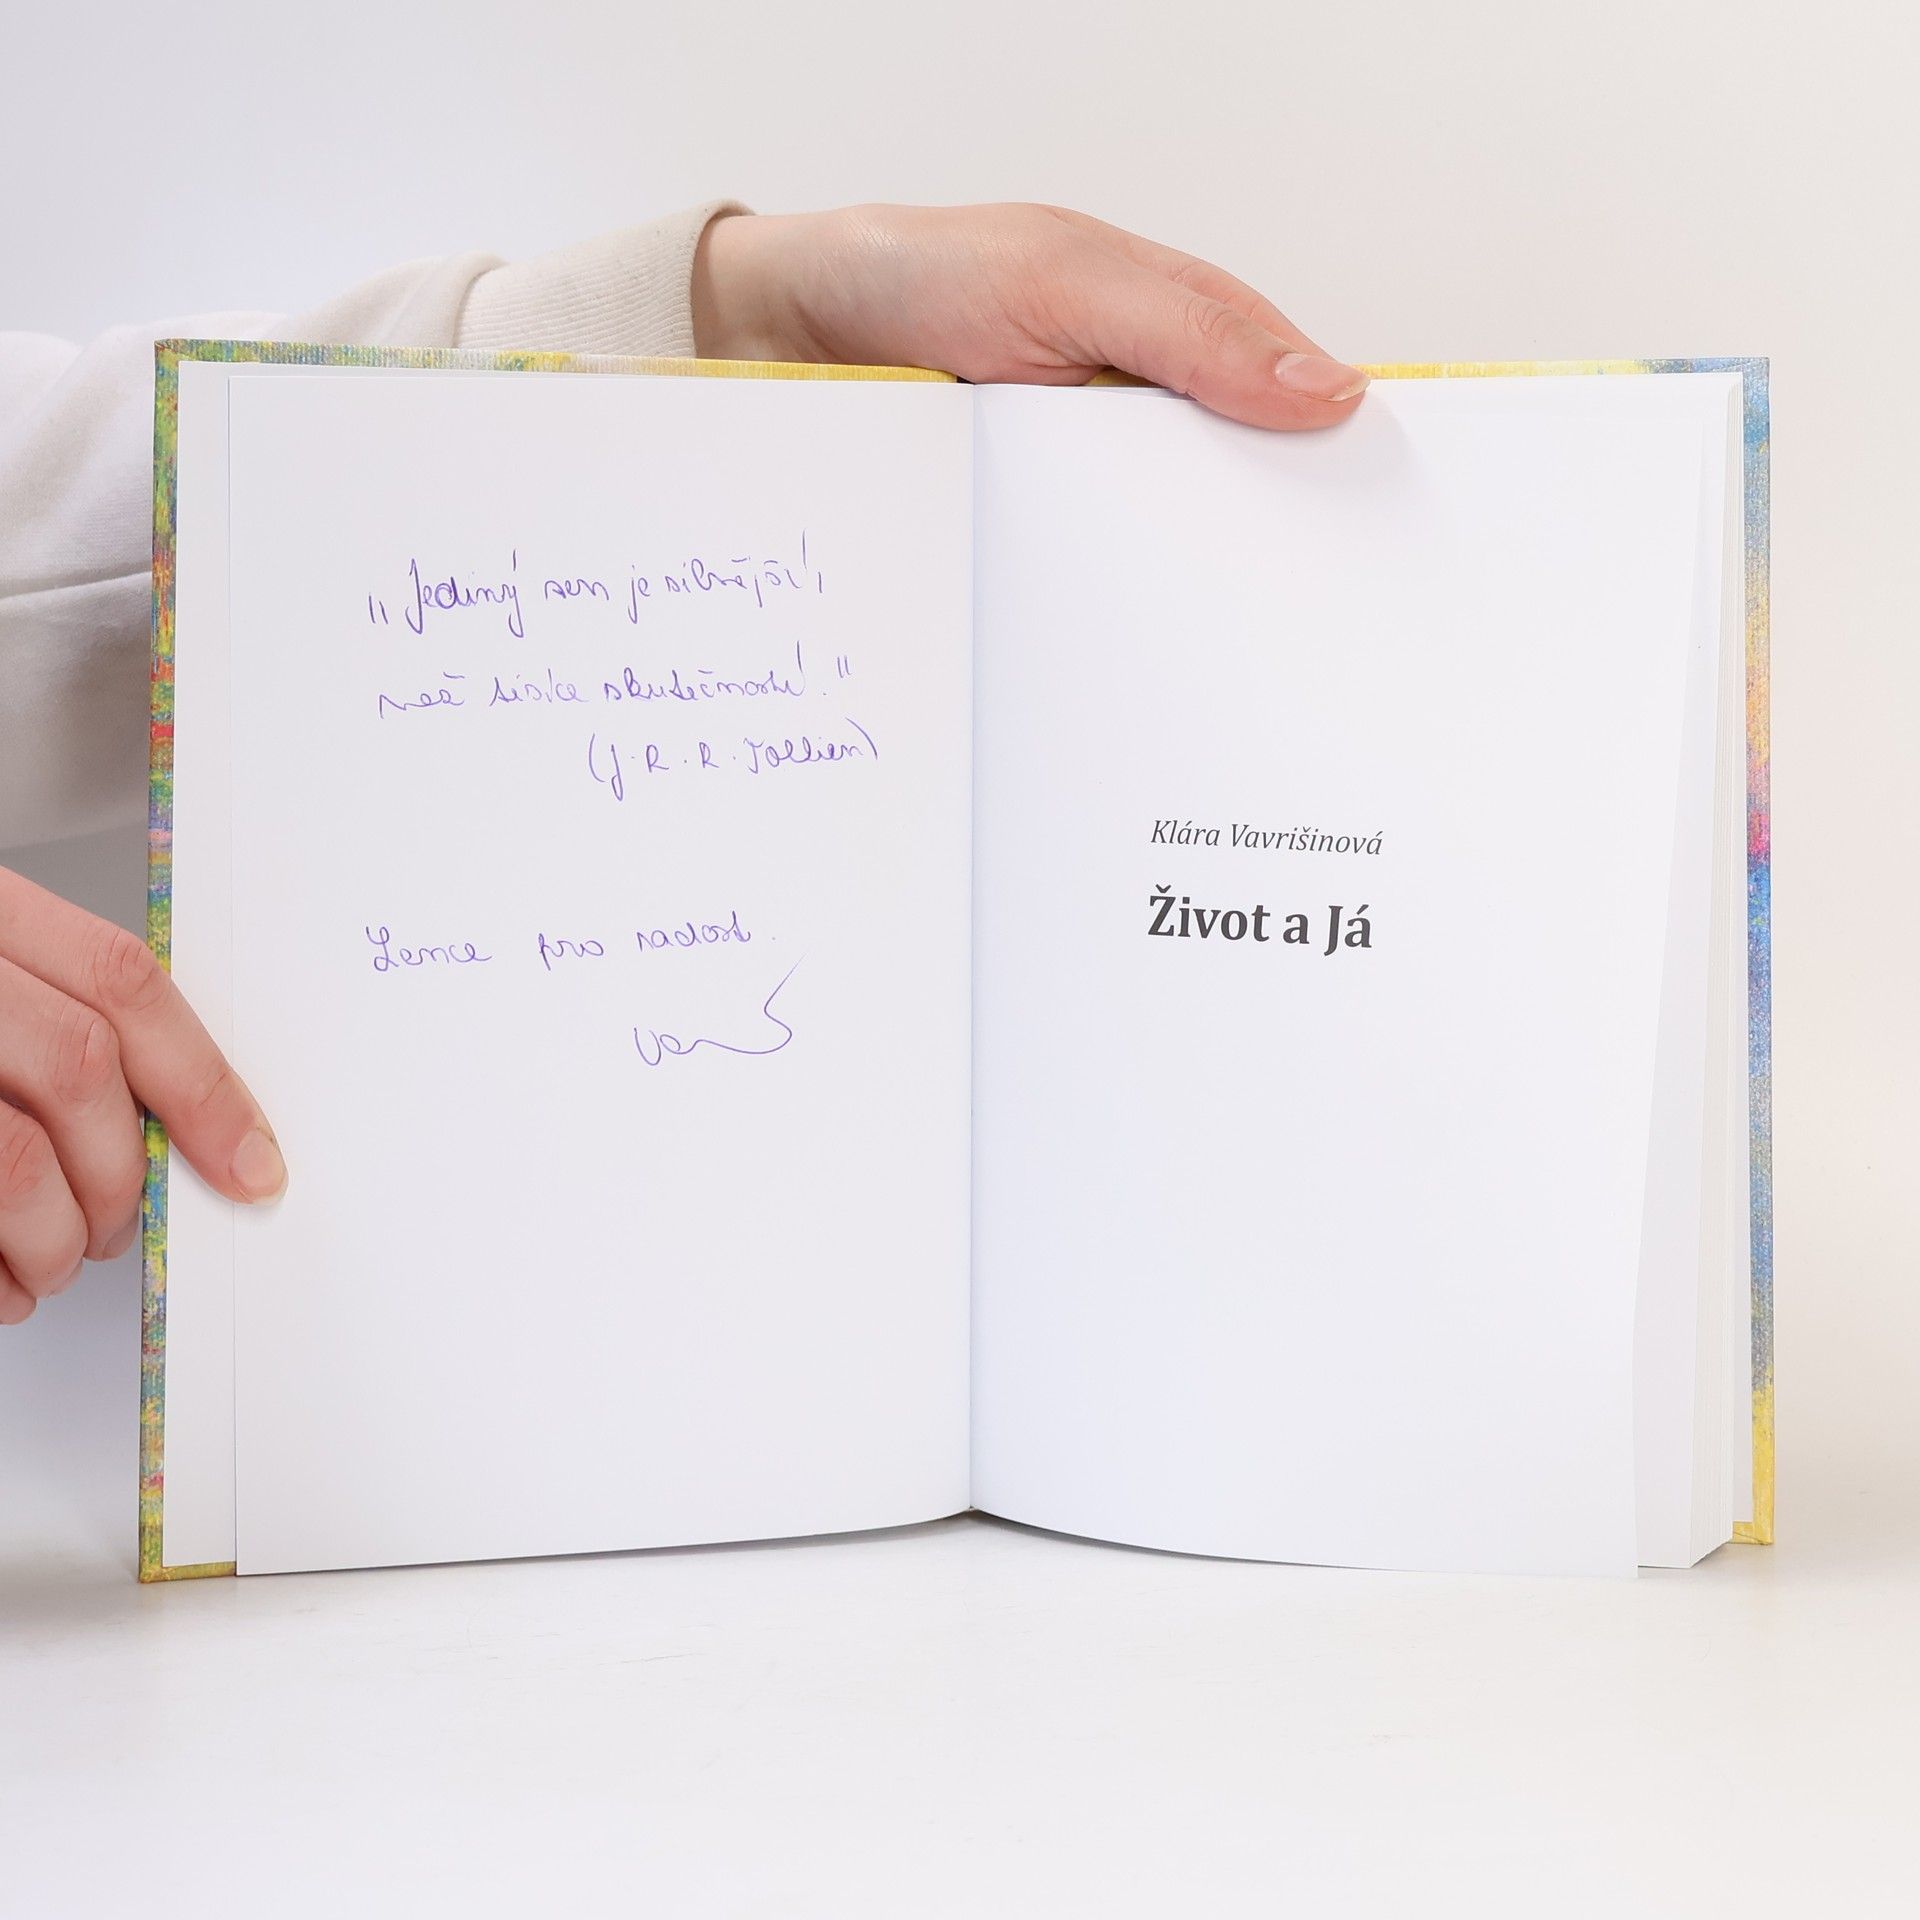 „Jediný sen je silnější,
než tisíce skutečností."
(J. R. R. Tolkien)
Lence pro radost.
Klára Vavrišinová
Život a Já